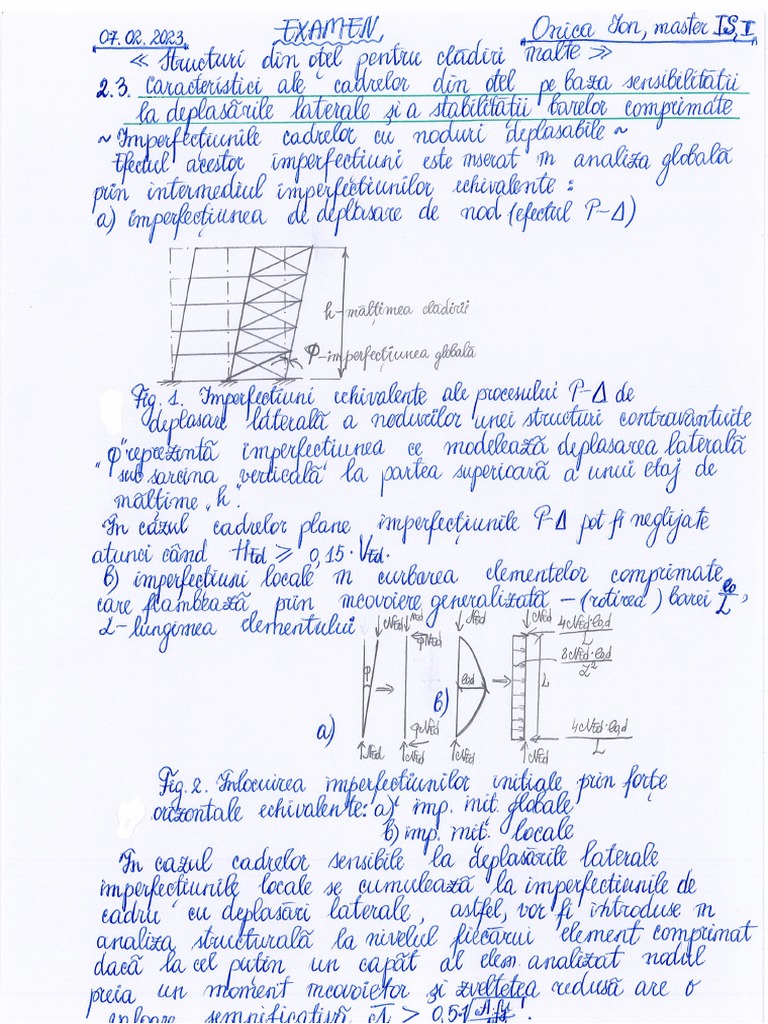 07.02.2023. EXAMEN, Onica Ion, master IS, I
« Structuri din oțel pentru clădiri înalte »
2.3. Caracteristici ale cadrelor din oțel pe baza sensibilității
la deplasările laterale și a stabilității barelor comprimate
~ Imperfecțiunile cadrelor cu noduri deplasabile ~
Efectul acestor imperfecțiuni este inserat în analiza globală
prin intermediul imperfecțiunilor echivalente :
a) imperfecțiunea de deplasare de nod (efectul P-Δ)
h-înălțimea clădirii
φ-imperfecțiunea globală
Fig. 1. Imperfecțiuni echivalente ale procesului P-Δ de
deplasare laterală a nodurilor unei structuri contravântuite
"φ" reprezintă imperfecțiunea ce modelează deplasarea laterală
sub sarcina verticală la partea superioară a unui etaj de
înălțime „h".
În cazul cadrelor plane imperfecțiunile P-Δ pot fi neglijate
atunci când HEd ≥ 0,15·VEd.
b) imperfecțiuni locale în curbarea elementelor comprimate
care flambează prin încovoiere generalizată – (rotirea) barei e0/L,
L-lungimea elementului
NEd NEd NEd NEd 4NEd·e0d/L
φNEd
8NEd·e0d/L²
φ e0d L
b)
φNEd 4NEd·e0d/L
a) NEd NEd NEd NEd
Fig. 2. Înlocuirea imperfecțiunilor inițiale prin forțe
orizontale echivalente: a) imp. init. globale
b) imp. init. locale
În cazul cadrelor sensibile la deplasările laterale
imperfecțiunile locale se cumulează la imperfecțiunile de
cadru cu deplasări laterale, astfel, vor fi introduse în
analiza structurală la nivelul fiecărui element comprimat
dacă la cel puțin un capăt al elem. analizat nodul
preia un moment încovoietor și zveltețea redusă are o
valoare semnificativă λ̄ > 0,5√A·fy